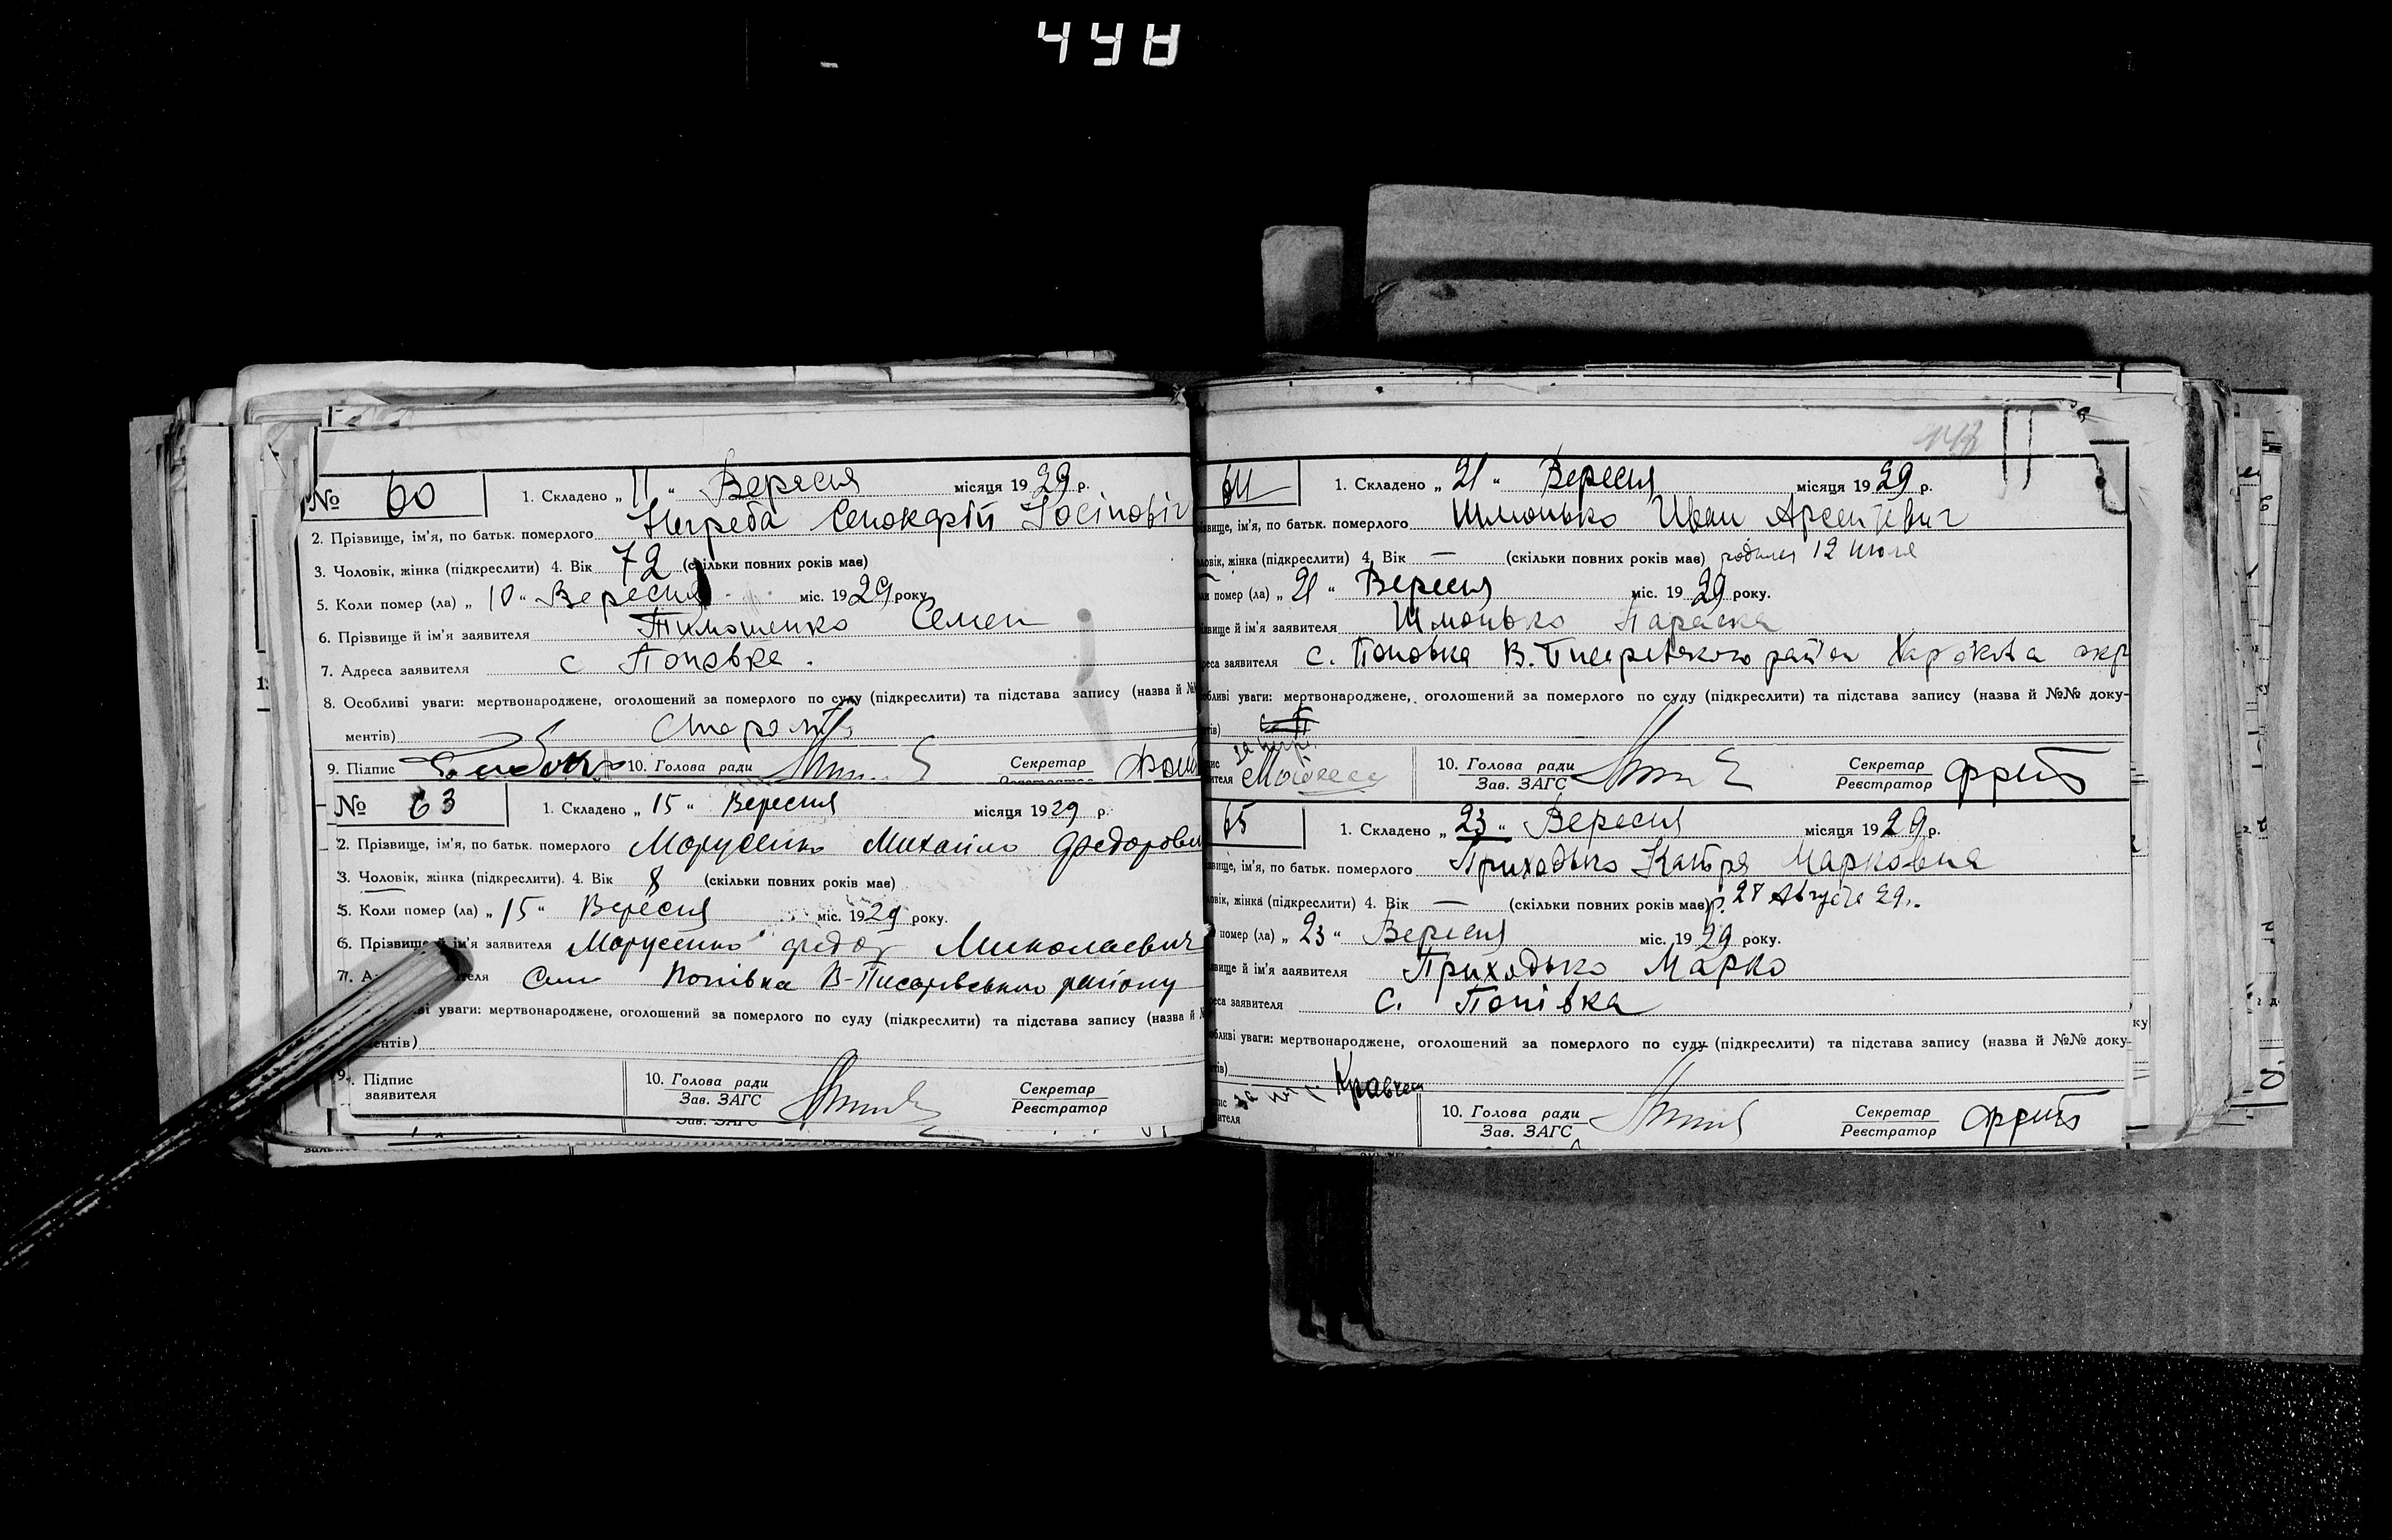 448
№ 60 1. Складено „ 11 “ Вересня місяця 1929 р.
2. Прізвище, ім'я, по батьк. померлого Негреба
3. Чоловік, жінка (підкреслити) 4. Вік 72 (скільки повних років має)
5. Коли помер (ла) „ 10 “ Вересня міс. 1929 року
6. Прізвище й ім'я заявителя Тимошенко Семен
7. Адреса заявителя с Поповка.
8. Особливі уваги: мертвонароджене, оголошений за померлого по суду (підкреслити) та підстава запису (назва й №
ментів)
9. Підпис 10. Голова ради Секретар
№ 63 1. Складено „ 15 “ Вересня місяця 1929 р.
2. Прізвище, ім'я, по батьк. померлого Марусенко Михайло Федорови
3. Чоловік, жінка (підкреслити). 4. Вік 8 (скільки повних років має)
5. Коли помер (ла) „ 15 “ Вересня міс. 1929 року.
6. Прізвище й ім'я заявителя Марусенко Федор Миколаевич
7. А теля Село Попівка В-Писарівського району
уваги: мертвонароджене, оголошений за померлого по суду (підкреслити) та підстава запису (назва й
ентів)
9. Підпис заявителя 10. Голова ради Зав. ЗАГС Секретар Реєстратор
64 1. Складено „ 21 “ Вересня місяця 1929 р.
звище, ім'я, по батьк. померлого Шмонько Иван Арсентьевич
ловік, жінка (підкреслити) 4. Вік — (скільки повних років має) родился 12 июля
помер (ла) „ 21 “ Вересня міс. 1929 року.
звище й ім'я заявителя Шмонько Параска
реса заявителя с. Поповка В. Писаревского окр
обливі уваги: мертвонароджене, оголошений за померлого по суду (підкреслити) та підстава запису (назва й №№ доку-
тів)
10. Голова ради Зав. ЗАГС Секретар Реєстратор
65 1. Складено „ 23 “ Вересня місяця 1929 р.
звище, ім'я, по батьк. померлого Приходько Катря Марковна
ловік, жінка (підкреслити) 4. Вік — (скільки повних років має) р. 28 Августа 29.
помер (ла) „ 23 “ Вересня міс. 1929 року.
звище й ім'я заявителя Приходько Марко
реса заявителя с. Попівка
обливі уваги: мертвонароджене, оголошений за померлого по суду (підкреслити) та підстава запису (назва й №№ доку-
тів)
за Кравчен
10. Голова ради Зав. ЗАГС Секретар Реєстратор